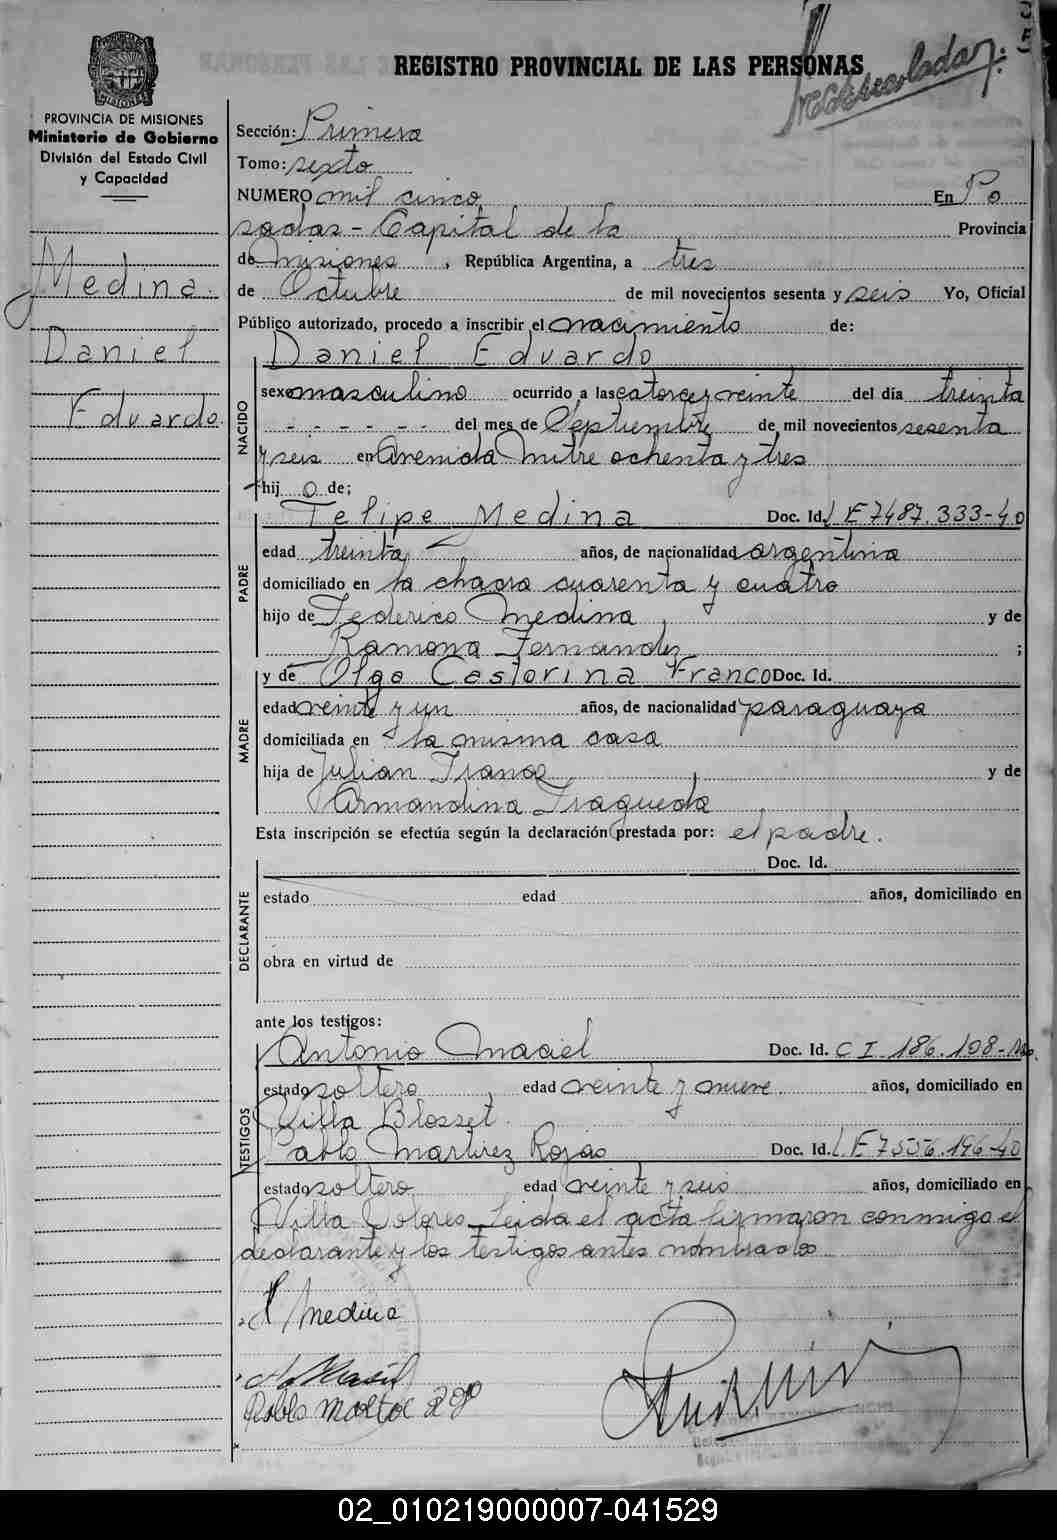 REGISTRO PROVINCIAL DE LAS PERSONAS
PROVINCIA DE MISIONES
Ministerio de Gobierno
División del Estado Civil
y Capacidad
Medina
Daniel
Eduardo
Sección: Primera
Tomo: sexto
NUMERO mil cinco En Po
sadas - Capital de la Provincia
de Misiones, República Argentina, a tres
de Octubre de mil novecientos sesenta y seis Yo, Oficial
Público autorizado, procedo a inscribir el nacimiento de:
NACIDO
Daniel Eduardo
sexo masculino ocurrido a las catorce y veinte del día treinta
- - - - - - del mes de Septiembre de mil novecientos sesenta
y seis en Avenida Mitre ochenta y tres
hij o de;
PADRE
Felipe Medina Doc. Id. L E 7487.333-40
edad treinta años, de nacionalidad argentina
domiciliado en la chacra cuarenta y cuatro
hijo de Federico Medina y de
Ramona Fernandez ;
MADRE
y de Olga Castorina Franco Doc. Id.
edad veinte y un años, de nacionalidad paraguaya
domiciliada en la misma casa
hija de Julian Franco y de
Armandina Fragueda
Esta inscripción se efectúa según la declaración prestada por: el padre.
DECLARANTE
Doc. Id.
estado edad años, domiciliado en
obra en virtud de
ante los testigos:
TESTIGOS
Antonio Maciel Doc. Id. C I. 186.198
estado soltero edad veinte y nueve años, domiciliado en
Villa Blosset.
Pablo Martirez Rojas Doc. Id. L E 7556.196-40
estado soltero edad veinte y seis años, domiciliado en
Villa Dolores Leida el acta firmaron conmigo el
declarante y los testigos antes nombrados
Medina
02_010219000007-041529